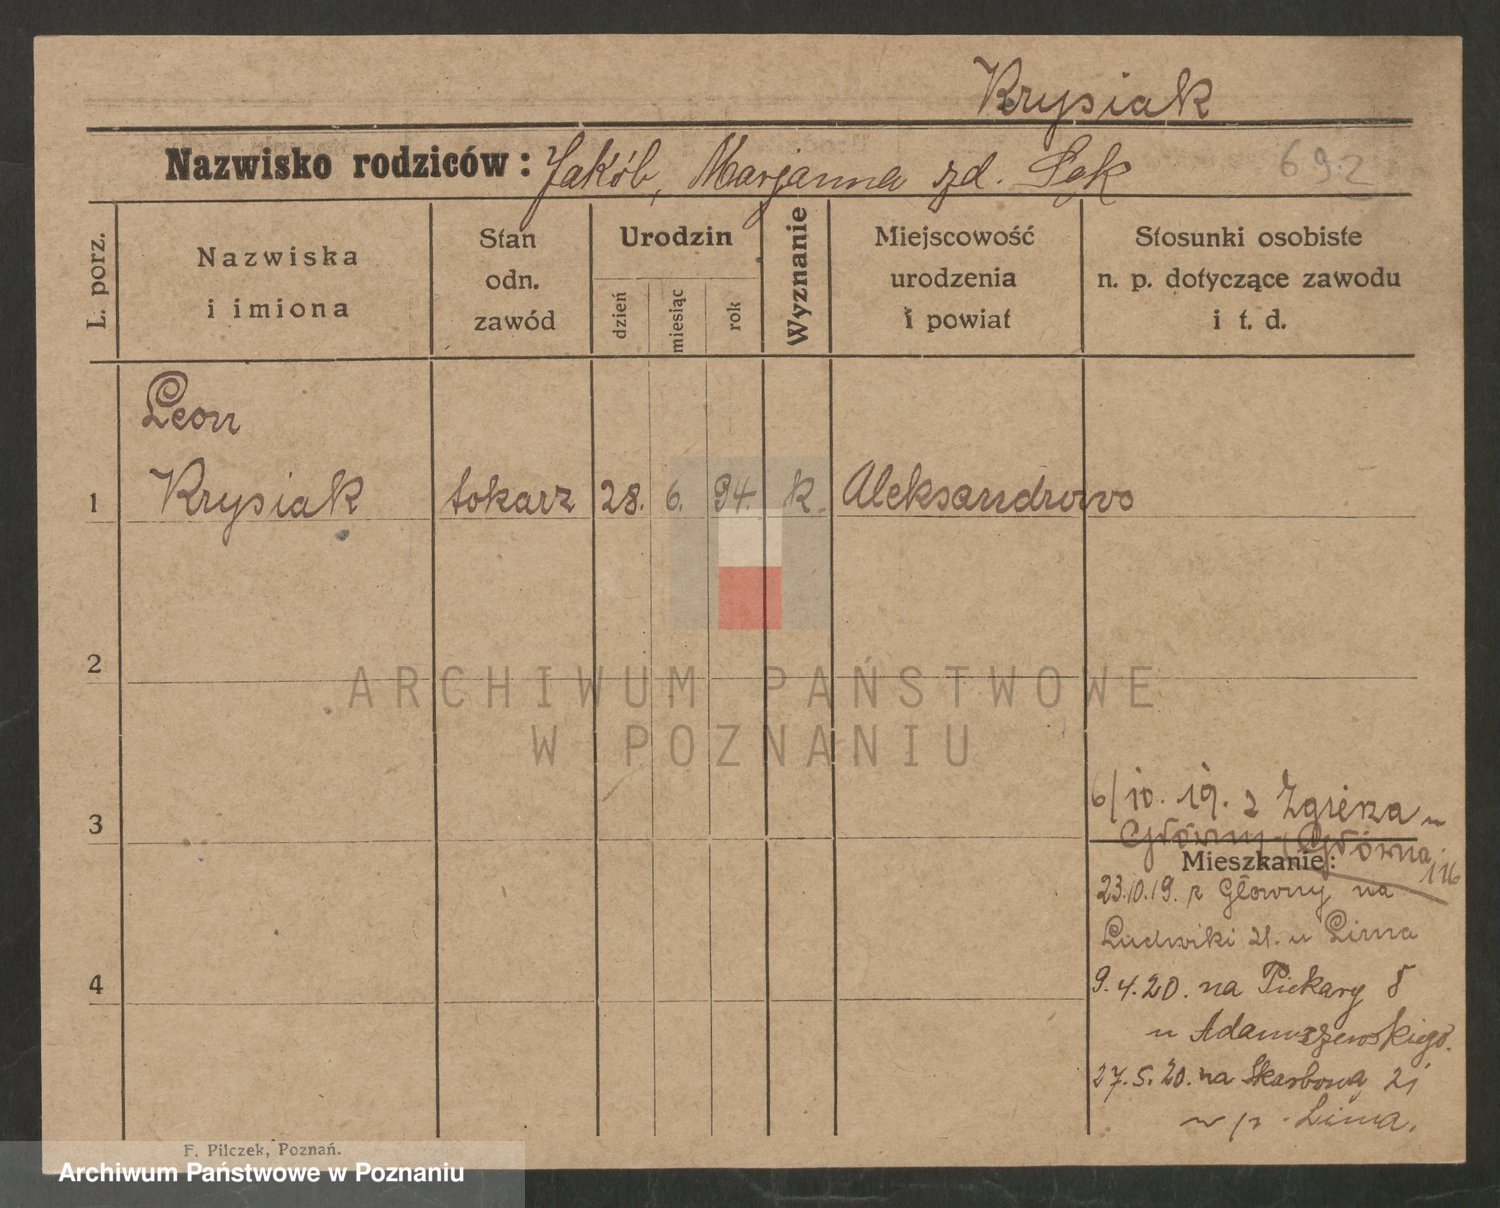 Krysiak
Nazwisko rodziców: Jakób, Marjanna zd. Sęk
692
L. porz.
Nazwiska
i imiona
Stan
odn.
zawód
Urodzin
dzień
miesiąc
rok
Wyznanie
Miejscowość
urodzenia
i powiat
Stosunki osobiste
n. p. dotyczące zawodu
i t. d.
Leon
1 Krysiak tokarz 28. 6. 94. k. Aleksandrowo
2
ARCHIWUM PAŃSTWOWE
W POZNANIU
3
6/10. 19. z Zgierza
Główny Główna
116
Mieszkanie:
23.10.19. z Główny na
Ludwiki 21. u Lima
4
9.4.20. na Piekary 8
u Adamszewskiego.
27.5.20. na Skarbową 21
p. Lima.
F. Pilczek, Poznań.
Archiwum Państwowe w Poznaniu